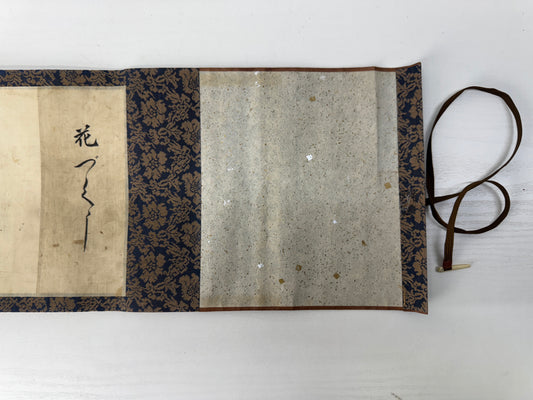 花づくし